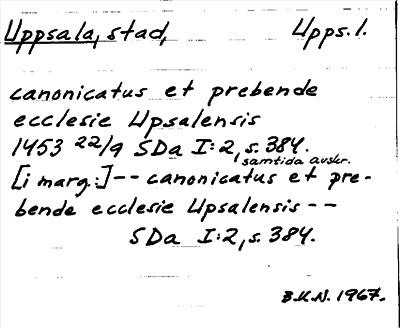 Uppsala, stad, Upps. l.
canonicatus et prebende
ecclesie Upsalensis
1453 22/9 SDa I:2, s. 384.
samtida avskr.
[i marg.:] -- canonicatus et pre-
bende ecclesie Upsalensis --
SDa I:2, s. 384.
B.K.N. 1967.